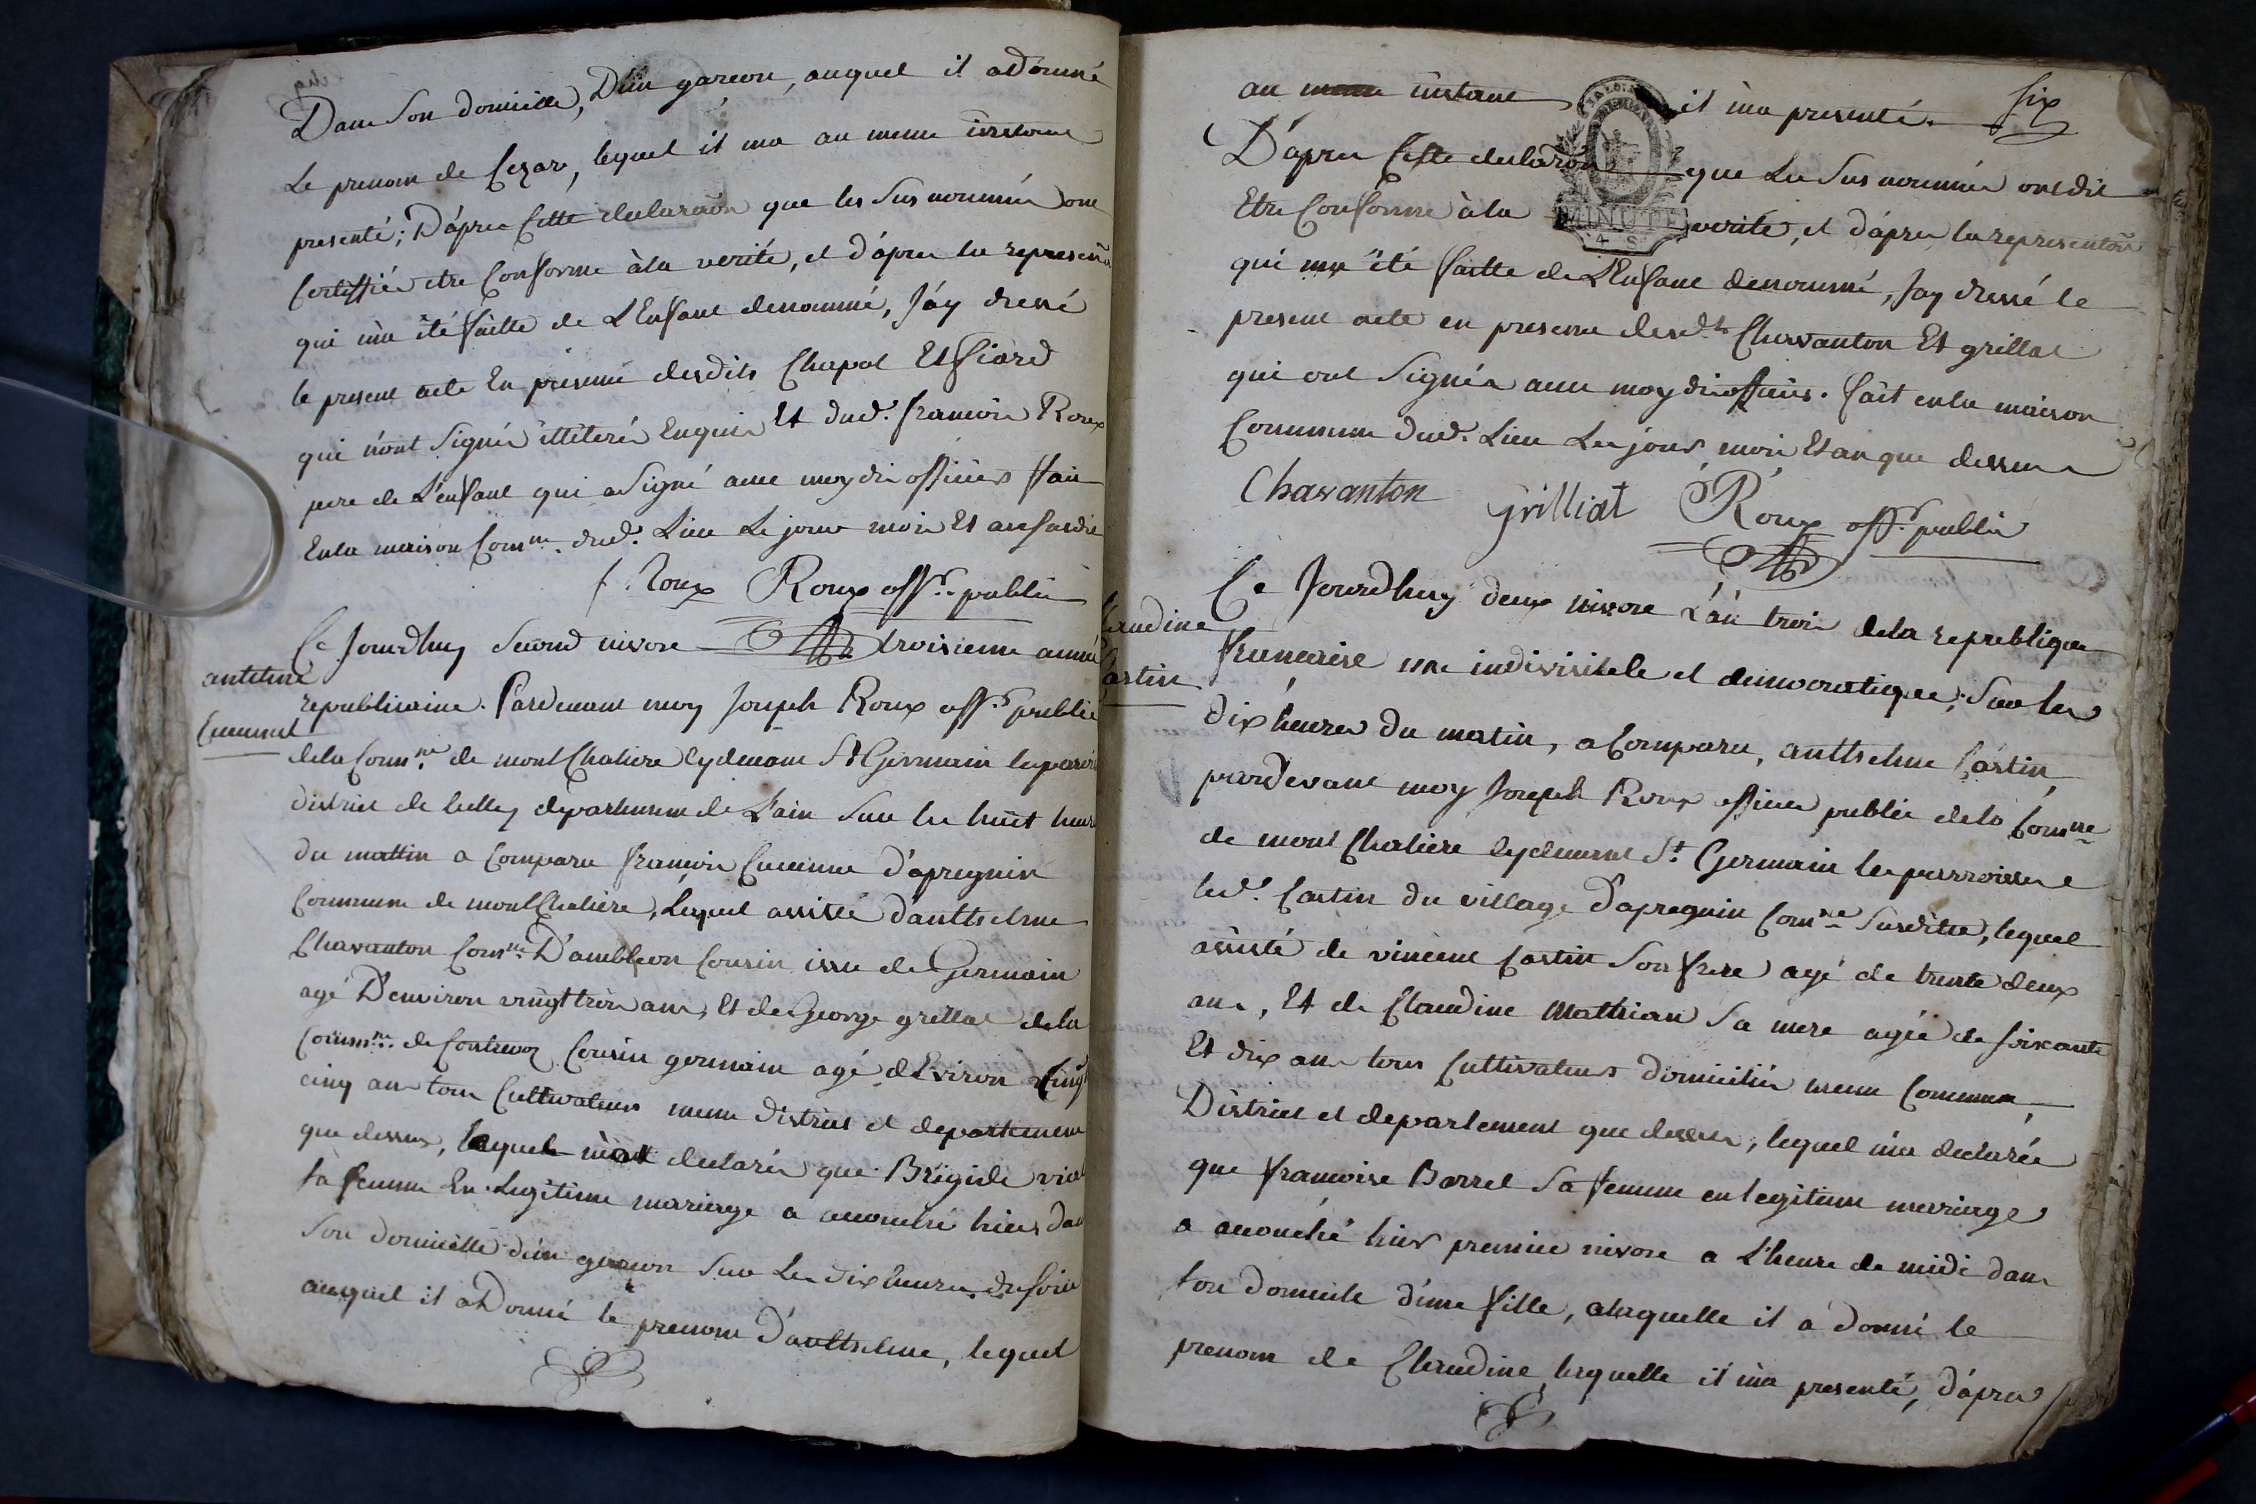 Dans son domicille, D'un garcon, auquel il a donné
Le prenom de Cezar, lequel il ma au meme instant
presenté; D'aprés Cette declaraon que les sus nommés ont
Certiffiés etre Conforme àla verité, et d'aprés la represenon
qui m'a été faitte de L'Enfant denommé, J'ay dressé
le present acte En presence desdits Chapot Et fiard
qui n'ont signés illiterés Enquis Et dud. francois Roux
pere de L'enfant qui a signé avec moy dit officiers fait
Enla maison Comne. dud. Lieu Le jour mois Et an susdit
f. Roux Roux offr. public
Ce Jourdhuy second nivose troisieme année
antelme
Cucuenet
republicaine. Pardevant moy Joseph Roux offr. public
dela Comne. de mont Chaliere cydevant St Germain le parois
district de belley departement de L'ain sur les huit heures
du mattin a Comparu francois Cucuenne d'apregnin
Commune de montChaliere, Lequel assisté d'anthelme
Chavanton Comne. D'ambleon Cousin issu de Germain
agé D'environ vingt trois ans, Et de George grillat dela
Comne. de Contrevoz Cousin germain agé d'Eviron Cinqt
cinq ans tous Cultivateurs meme district et departement
que dessus, lequel m'a declarés que Brigide vial
sa femme En Legitime mariage a accouché hiers dans
son domicille d'un garçon sur Les dix heures du soir
auquel il a Donné le prenom D'anthelme, lequel
six
au instant il m'a presenté.
D'aprés Cette declaraon que Les sus nommés ont dit
Etre Conforme àla verité, et d'aprés la representaon
MINUTE
4 S
qui ma été faitte de L'Enfant denommé, Jay dressé le
present acte en presence desdts Chavanton Et grillat
qui ont signés avec moy dit officiers. fait enla maison
Commune dud. Lieu Les jours, mois Et an que dessus
Chavanton grilliat Roux offr. public
Ce Jourdhuy deux nivose L'an trois dela republique
Claudine
Castin
francaise une indivisible et democratique; sur les
dix heures du matin, a Comparu, anthelme Castin,
pardevant moy Joseph Roux officier public dela Comne
de mont Chaliere cydevant St. Germain les parroisse
led. Castin du village D'apregnin Comne susditte, lequel
assisté de vincent Castin son frere agé de trente deux
ans, Et de Claudine Mathian sa mere agée de soixante
Et dix ans tous Cultivateurs domiciliés meme Commune,
District et departement que dessus, lequel m'a declarée
que francoise Borrel sa femme en legitime mariage
a accouché hier premier nivose a L'heure de midi dans
son domicile d'une fille, alaquelle il a donné le
prenom de Claudine laquelle il m'a presenté, d'aprés